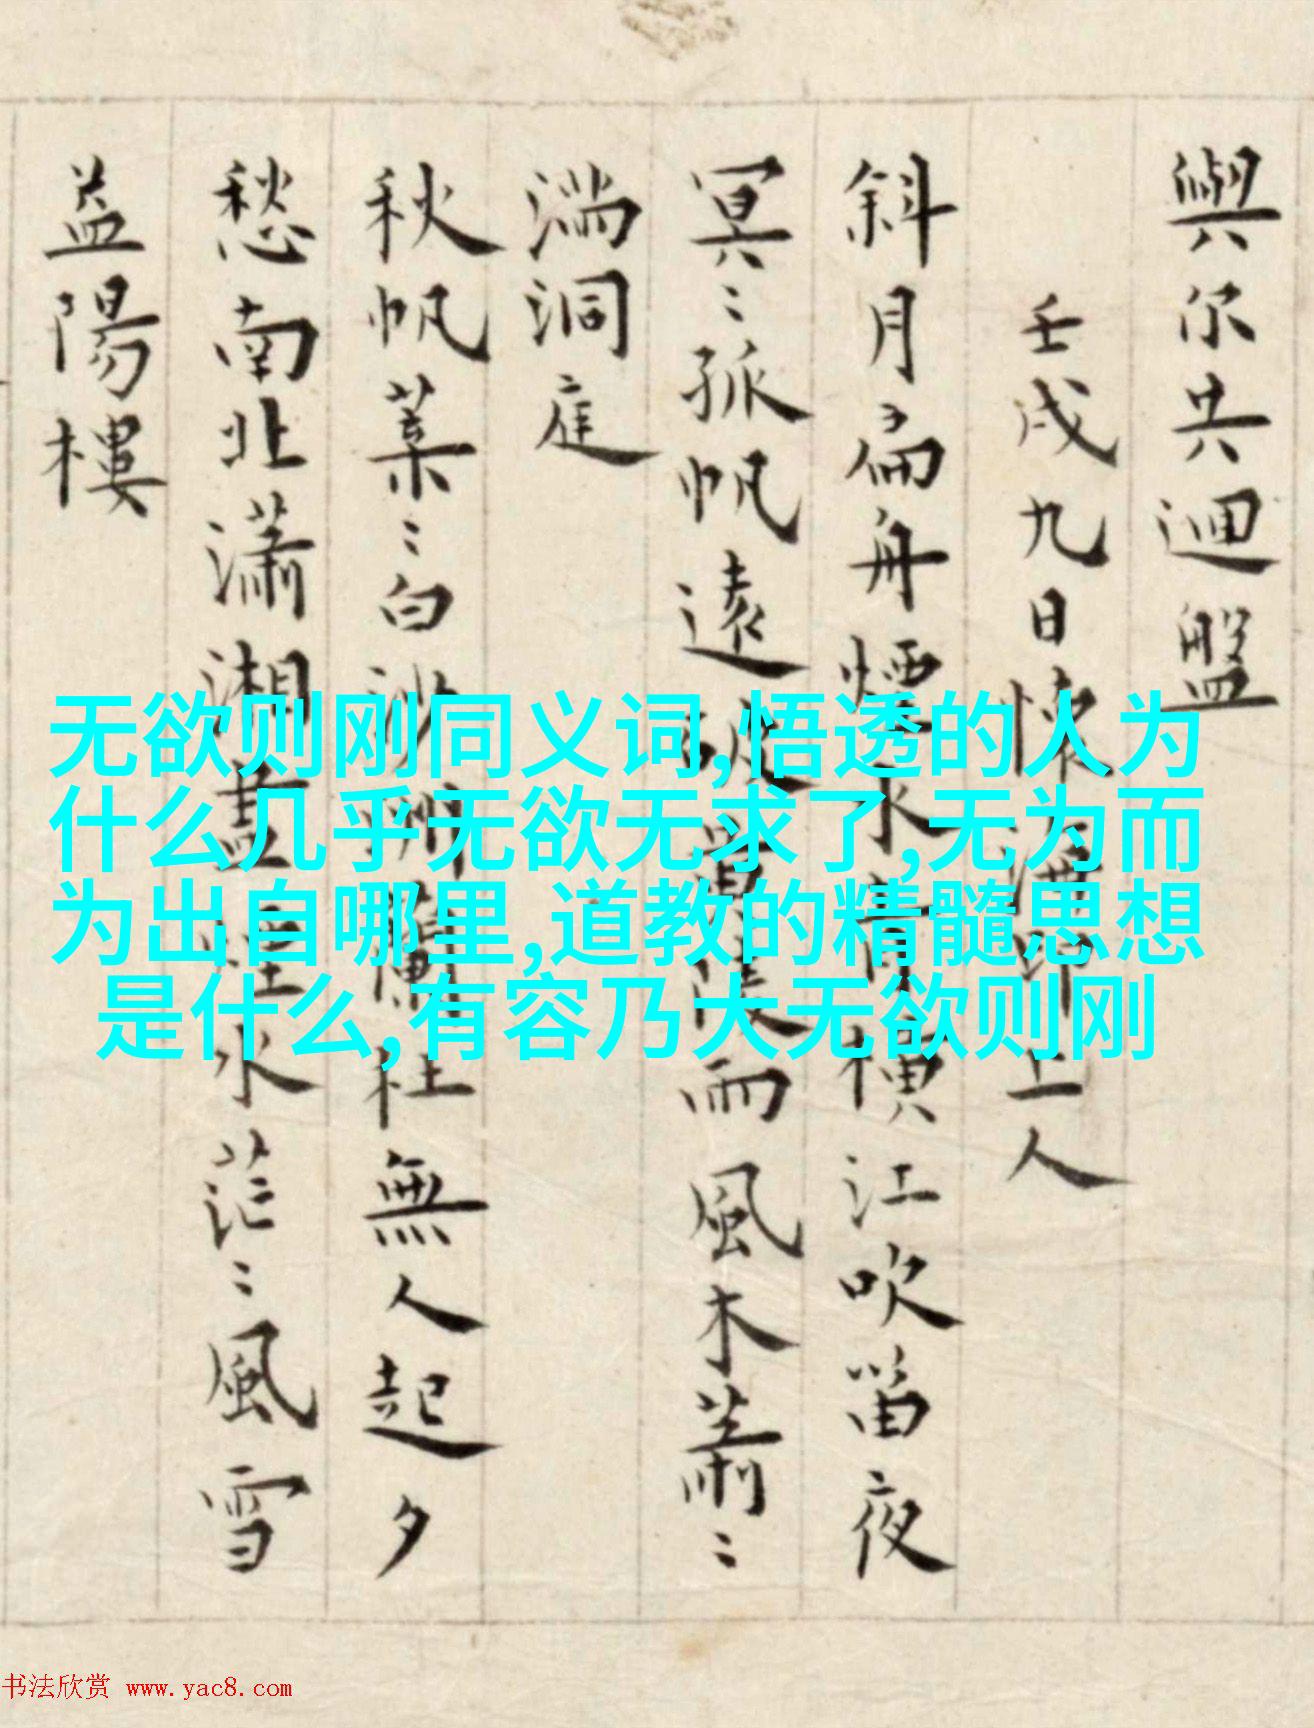 與尔共迴盤
壬戌九日懷上人
斜月扁舟煙水橫江吹笛夜
冥〻孤帆遠而風木蕭〻
湍洞庭
秋帆葉〻白沙杜無人起夕
愁南北瀟湘盡水茫〻風雪
益陽樓
无欲则刚同义词,悟透的人为
什么几乎无欲无求了,无为而
为出自哪里,道教的精髓思想
是什么,有容乃大无欲则刚
书法欣赏 www.yac8.com